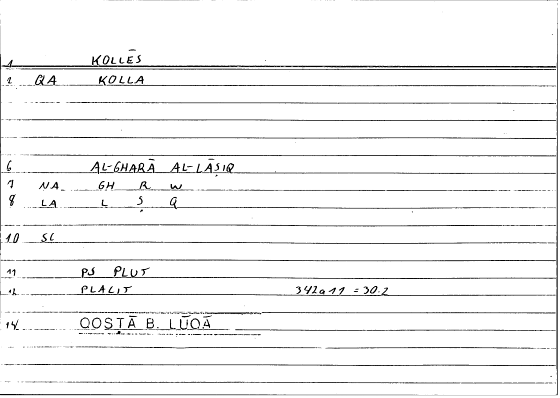 1 KOLLĒS
2 QA KOLLA
6 AL-GHARĀ AL-LĀṢIQ
7 NA GH R W
8 LA L Ṣ Q
10 SC
11 PS PLUT
12 PLACIT 342a11 = 30.2
14 QOSṬĀ B. LŪQĀ